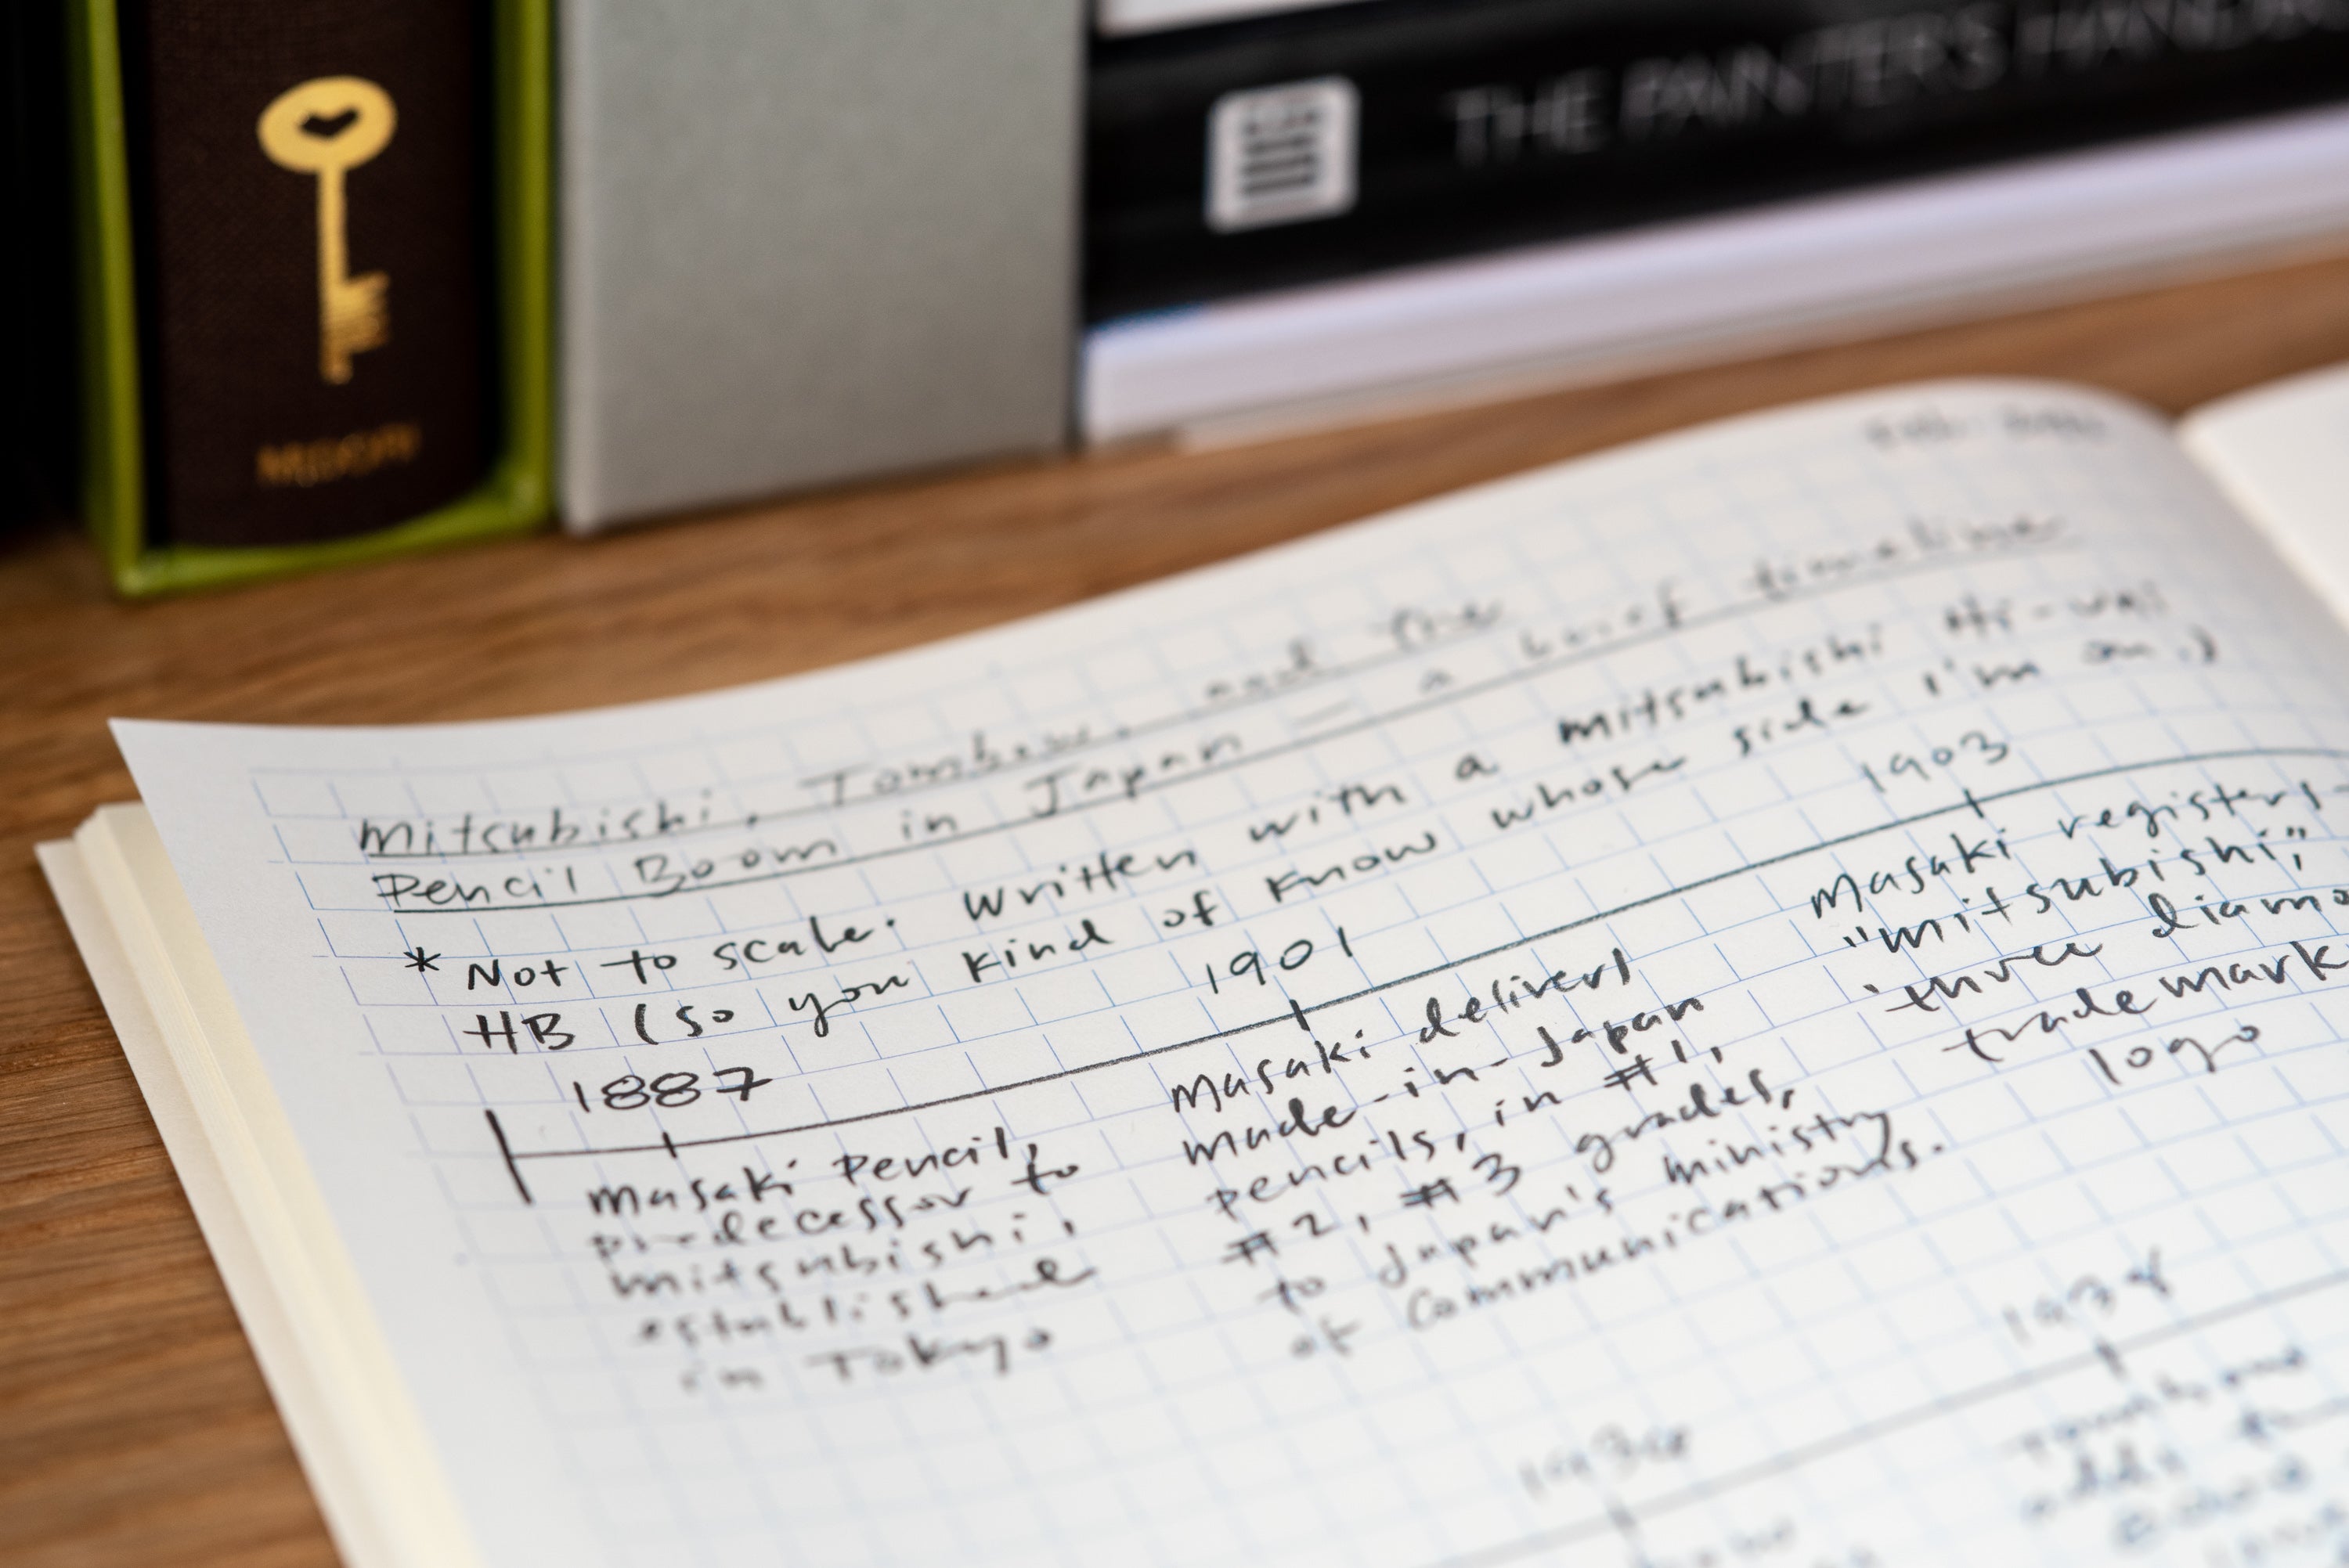 MIDORI
THE PAINTER'S
Mitsubishi, Tombow, and the
Pencil Boom in Japan — a brief timeline
* Not to scale. Written with a Mitsubishi Hi-uni
HB (so you kind of know whose side I'm on.)
1887
Masaki Pencil,
predecessor to
Mitsubishi,
established
in Tokyo
1901
Masaki delivers
made-in-Japan
pencils, in #1,
#2, #3 grades,
to Japan's ministry
of Communications.
1903
Masaki registers
"Mitsubishi,"
three
trademark
logo